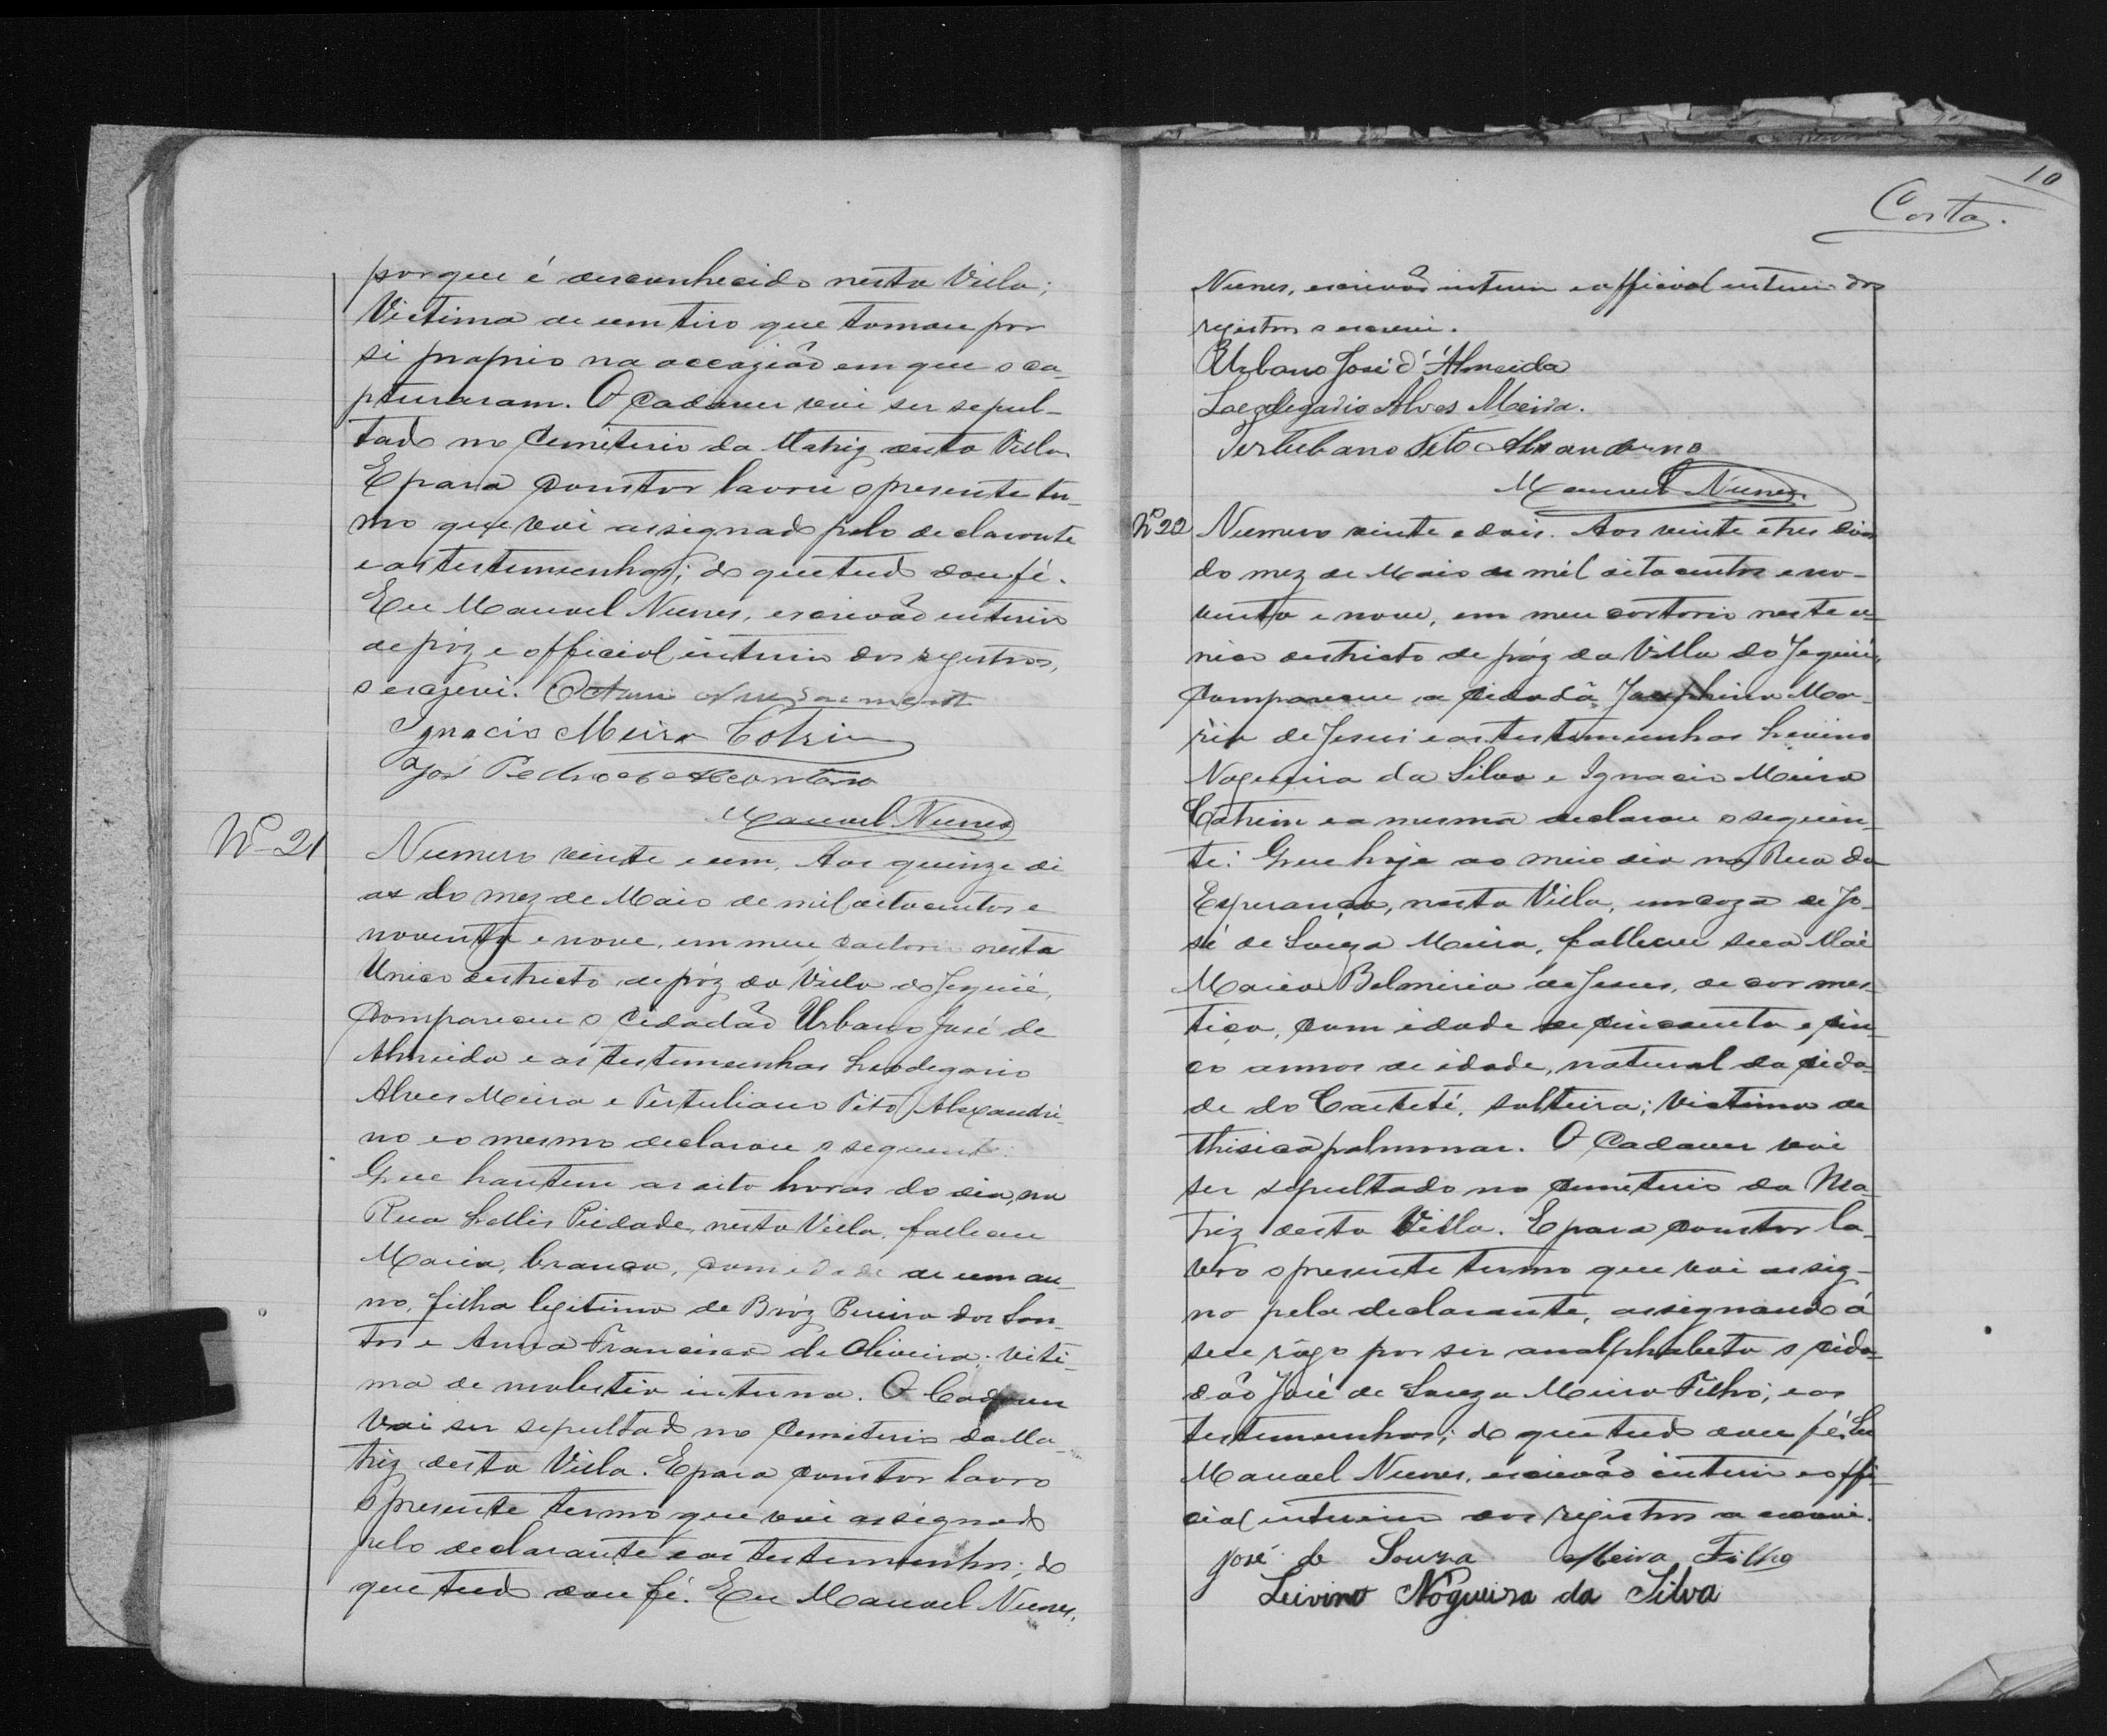 porque é desconhecido nesta Villa;
Victima de um tiro que tomou por
si proprio na occazião em que o ca-
pturaram. O Cadaver vai ser sepul-
tado no Cemiterio da Matriz desta Villa
E para constar lavrei o presente ter-
mo que vai assignado pelo declarante
e as testemunhas; do que tudo dou fé.
Eu Manoel Nunes, escrivão interino
de paz e official interino dos registros,
o escrevi.
Ignacio Meira Cotrim
José Pedro de Alcantara
Manoel Nunes
Nº 21
Numero vinte e um. Aos quinze di
as do mez de Maio de mil oitocentos e
noventa e nove, em meu cartorio nesta
Unico destricto de páz da Villa do Jequié,
Compareceu o Cidadão Urbano José de
Almeida e as testemunhas Leodegario
Alves Meira e Tertuliano Tito Alexandri-
no e o mesmo declarou o seguinte:
Que hontem as oito horas do dia, na
Rua Lellis Piedade, nesta Villa, falleceu
Maria, branca, com idade de um an-
no, filha legitima de Bráz Pereira dos San-
tos e Anna Francisca de Oliveira; viti-
ma de molestia interna. O Cadaver
Vai ser sepultado no Cemiterio da Ma-
triz desta Villa. E para constar lavro
o presente termo que vai assignado
pelo declarante e as testemunhas; do
que tudo dou fé. Eu Manoel Nunes,
10
Costa.
Nunes, escrivão interino e official interino dos
registros o escrevi.
Urbano José d'Almeida
Leodegario Alves Meira.
Tertuliano Tito Alexandrino
Manoel Nunes
Nº 22
Numero vinte e dois. Aos vinte e tres dias
do mez de Maio de mil oitocentos e no-
venta e nove, em meu cartorio neste u-
nico destricto de páz da Villa do Jequié,
Compareceu a cidadã Josephina Ma-
ria de Jesus e as testemunhas Levino
Nogueira da Silva e Ignacio Meira
Cotrim e a mesma declarou o seguin-
te: Que hoje ao meio dia na Rua da
Esperança, nesta Villa, em caza de Jo-
sé de Souza Meira, falleceu sua Mãe
Maria Belmira de Jesus, de cor mes-
tiça, com idade de cincoenta e cin-
co annos de idade, natural da cida-
de do Caeteté, solteira; Victima de
thisica pulmonar. O Cadaver vai
ser sepultado no cemiterio da Ma-
triz desta Villa. E para constar la-
vro o presente termo que vai assig-
no pela declarante, assignando á
seu rógo por ser analphabeta o cida-
dão José de Souza Meira Filho; e as
testemunhas; do que tudo dou fé. Eu
Manoel Nunes, escrivão interino e offi-
cial interino dos registros o escrevi.
José de Souza Meira Filho
Leivino Nogueira da Silva